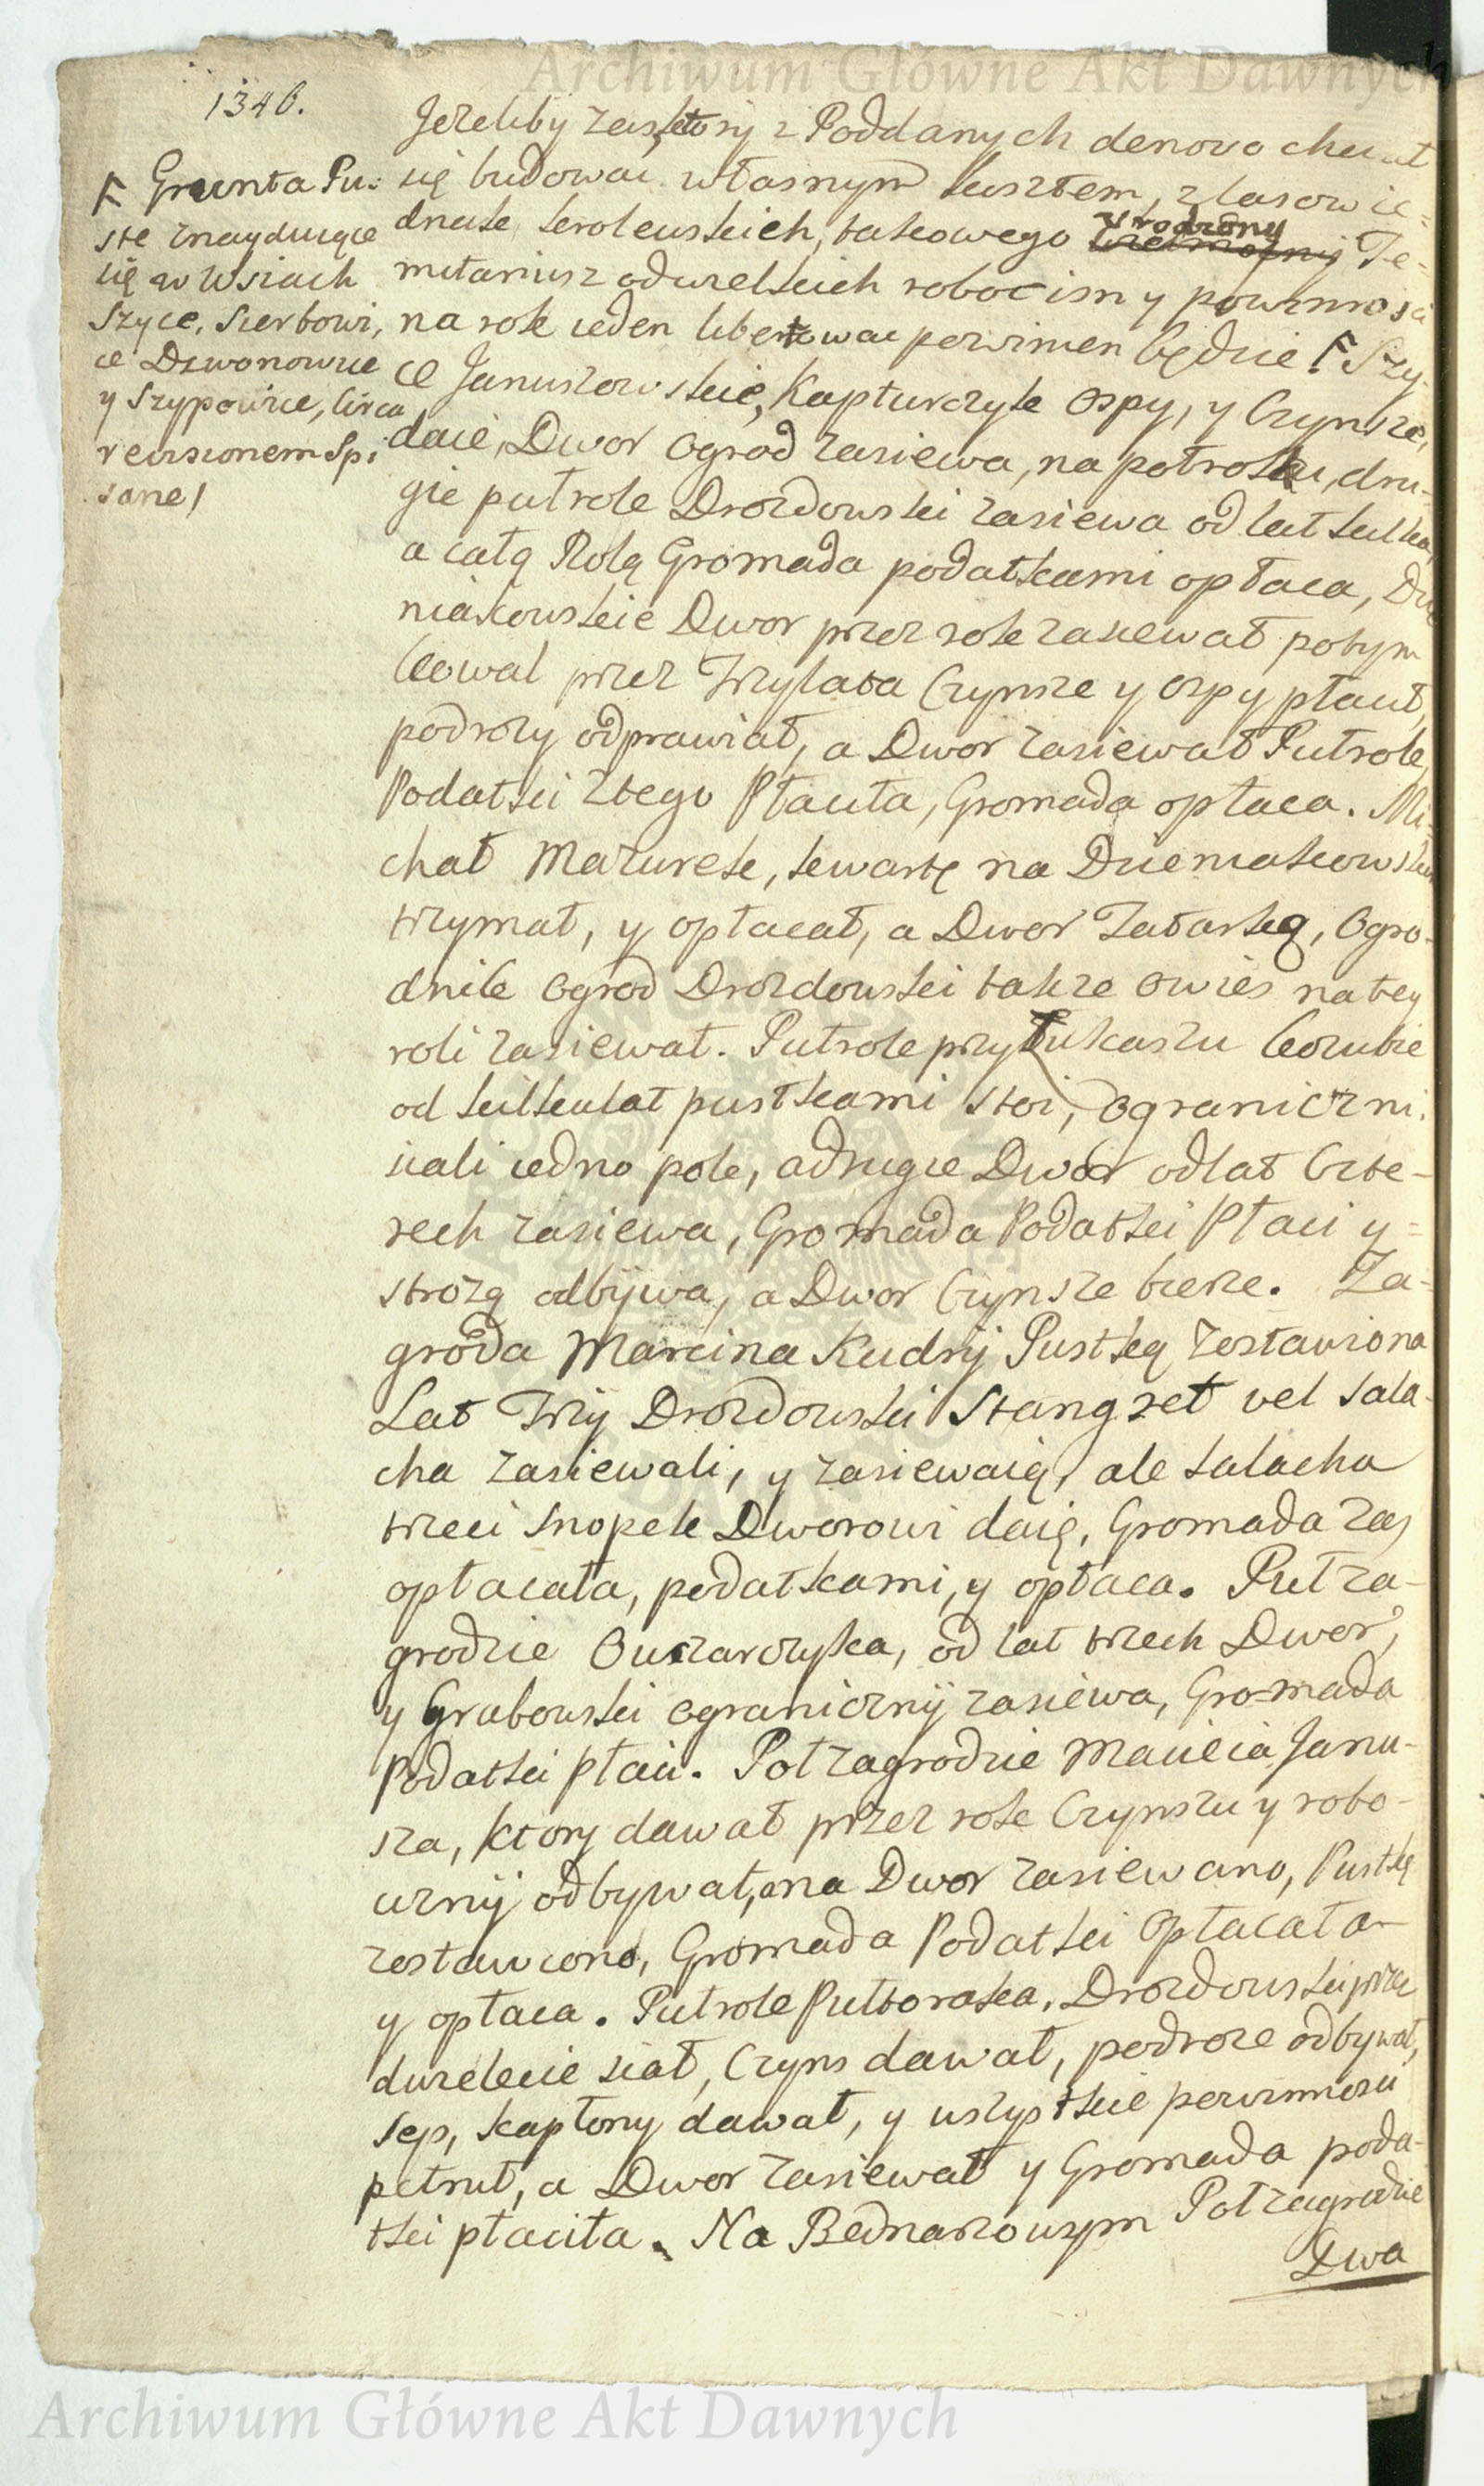 Archiwum Główne Akt Dawnych
1346.
Jezeliby zas ktory z Poddanych denovo chciał
się budowac własnym kosztem, z lasow ie-
dnak krolewskich, takowego Urodzony Te-
nutariusz od wselkich robocizn y powinnosci
na rok ieden libertowac powinien będzie Ⱶ Szy-
Ⱶ Grunta Pu-
ste znayduiące
się w Wsiach
Szyce, Sierbowi,
ce Dzwonowice
y Szypowice, circa
revisionem Spi
sane/
ce Januszowskie, Kapturczyk Ospy, y Czynsze,
daie, Dwor Ogrod zasiewa, na połrolku, dru-
gie pułrole Drozdowski zasiewa od lat kilku,
a całą Rolą Gromada podatkami opłaca,
niakowskie Dwor przez rok zasiewał potym
Kowal przez Trzylata Czynsze y Ospy płacił,
podrozy odprawiał, a Dwor zasiewał Pułrole,
Podatki ztego Płacıła, Gromada opłaca. Mi-
chał Mazurek, kwartę na Dzieniakowskim
trzymał, y opłacał, a Dwor Tatarkę, Ogro-
dnik Ogrod Drozdowski takze Owies na tey
roli zasiewał. Pułrole przy Łukaszu Kozubie
od kilkulat pustkami stoi, Ograniczni,
siali iedno pole, a drugie Dwor od lat Czte-
rech zasiewa, Gromada Podatki Płaci y
strożą odbywa, a Dwor Czynsze bierze. Za-
groda Marcina Kudry Pustką zostawiona
Lat Trzy Drozdowski Stangret vel Sala-
cha zasiewali, y zasiewaią, ale Salacha
trzeci Snopek Dworowi daią, Gromada zas
opłacała, podatkami, y opłaca. Puł za-
grodzie Owczarczyka, od lat trzech Dwor,
y Grabowski Ograniczny zasiewa, Gromada
Podatki płaci. Poł zagrodzie Macieia Janu-
sza, ktory dawał przez rok Czynszu y robo-
cizny odbywał, a na Dwor zasiewano, Pustką
zostawiono, Gromada Podatki Opłacała
y opłaca. Pułrole Pułtoraka, Drozdowski przez
dwielecie siał, Czyns dawał, podroze odbywał,
Sep, kapłony dawał, y wszystkie powinnosci
pełnił, a Dwor zasiewał y Gromada poda-
tki płaciła. Na Bednarzowym Poł zagrodzie
Dwa
Archiwum Główne Akt Dawnych